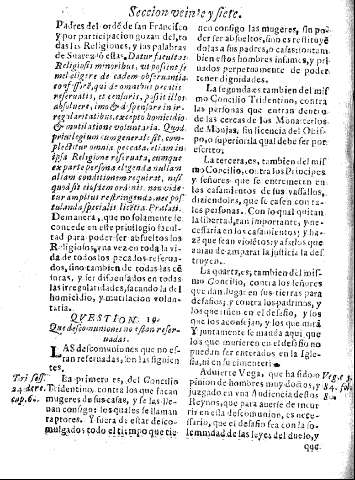 Seccion veinte y siete.
Padres del ordẽ de san Francisco
y por participacion gozan del, to
das las Religiones, y las palabras
de Suarez son estas. Datur facultas
Religiosis minoribus, ut possint se
mel eligere de eadem observantia
confessore, qui de omnibus peccatis
reservatis, et censuris, possit illos
absolvere, imo & dispensare in ir-
regularitatibus, excepto homicidio
& mutilatione voluntaria. Quod
privilegium quo generale est, com-
plectitur omnia peccata, etiam in ip
sa Religione reservata, eumque
ex parte personæ eligendæ nullam
aliam conditionem requirat, nisi
quod sit eiusdem ordinis, non vide
tur amplius restringenda, nec pos
tulanda specialis licentia Prælati.
De manera, que no solamente se
concede en este privilegio facul
tad para poder ser absueltos los
Religiosos, una vez en toda la vi
da de todos los pecados reserva-
dos, sino tambien de todas las cẽ
suras, y ser dispensados en todas
las irregularidades, sacando la del
homicidio, y mutilacion volun-
taria.
QVESTION. 19.
Que descomuniones no estan reser-
vadas.
LAS descomuniones que no es-
tan reservadas, son las siguien
tes.
La primera es, del Concilio
Tridentino, contra los que sacan
mugeres de sus casas, y se las lle-
van consigo: los quales se llaman
raptores. Y fuera de estar desco-
mulgados todo el tiempo que tie
Tri. sess.
24. de re.
cap. 6.
nen consigo las mugeres, sin po-
der ser absueltos, sino es restituyẽ
dolas a sus padres, o casas: son tam
bien estos hombres infames, y pri
vados perpetuamente de poder
tener dignidades.
La segunda es tambien del mis
mo Concilio Tridentino, contra
las personas que entran dentro
de las cercas de los Monasterios
de Monjas, sin licencia del Obis-
po, o superior, la qual debe ser por
escrito.
La tercera, es, tambien del mis
mo Concilio, contra los Principes
y señores que se entremeten en
los casamientos de sus vassallos,
diziendoles, que se casen con ta-
les personas. Con lo qual quitan
la libertad, tan importante, y ne-
cessaria en los casamientos; y ha-
zẽ que sean violẽtos; y a los que
avian de amparar la justicia la des
truyen.
La quarta, es, tambien del mis-
mo Concilio, contra los señores
que dan lugar en sus tierras para
desafios, y contra los padrinos, y
los que riñen en el desafio, y los
que los aconsejan, y los que mirã
Y juntamente manda aqui que
los que murieren en el desafio no
puedan ser enterrados en la Igle-
sia, ni en su cimenterio.
Advierte Vega, que ha sido o
pinion de hombres muy doctos, y
juzgado en una Audiencia destos
Reynos, que para averse de incur
rir en esta descomunion, es neces-
sario, que el desafio sea con la so-
lemnidad de las leyes del duelo, y
Veg. 1. p.
que